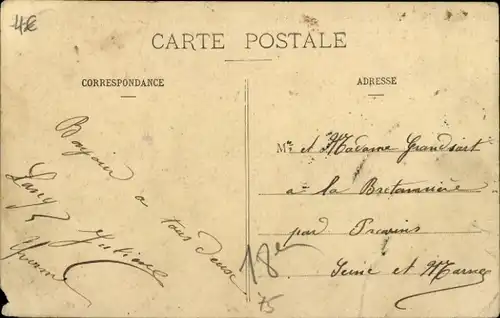 4€
CARTE POSTALE
CORRESPONDANCE
ADRESSE
Bonjour
a tous deux
Juliane
Yvonne
Mr et Madame Grandsart
a la Bretonnière
par Provins
Seine et Marne
18e
75